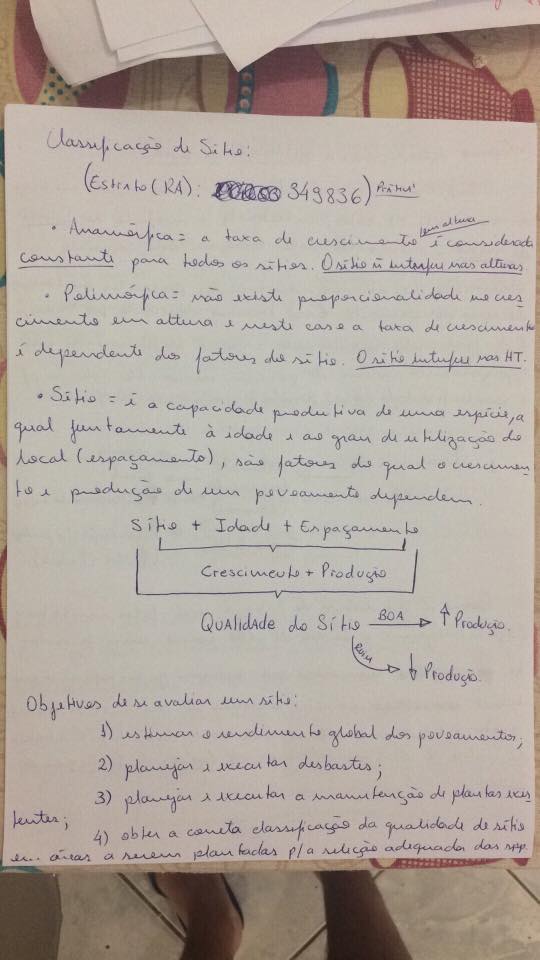 Classificação de Sítio:
(Estrito (RA): 349836)
• Anamórfica = a taxa de crescimento em altura é considerada
constante para todos os sítios. O sítio ñ interfere nas alturas.
• Polimórfica = não existe proporcionalidade no cres-
cimento em altura e neste caso a taxa de crescimento
é dependente dos fatores do sítio. O sítio interfere nas HT.
• Sítio = é a capacidade produtiva de uma espécie, a
qual juntamente à idade e ao grau de utilização do
local (espaçamento), são fatores do qual o crescimen-
to e produção de um povoamento dependem.
Sítio + Idade + Espaçamento
Crescimento + Produção
Qualidade do Sítio BOA ↑ Produção.
Ruim ↓ Produção.
Objetivos de se avaliar um sítio:
1) estimar o rendimento global dos povoamentos;
2) planejar e executar desbastes;
3) planejar e executar a manutenção de plantas exis
tentes;
4) obter a correta classificação da qualidade de sítio
em áreas a serem plantadas p/ a seleção adequada das spp.